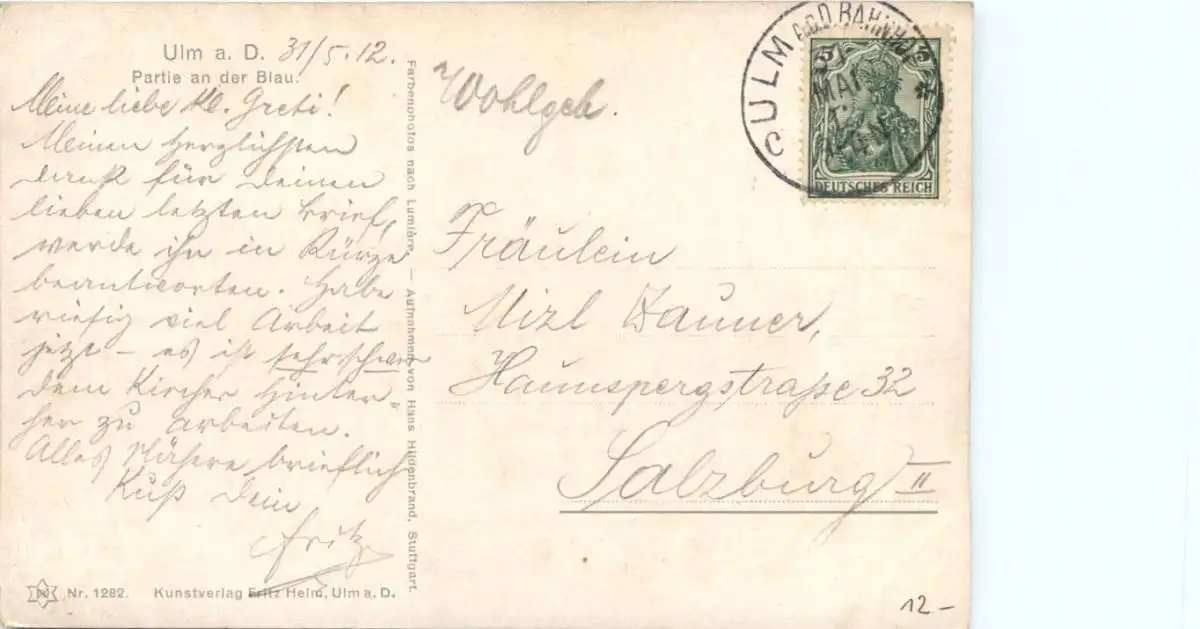 Ulm a. D. 31/5.12.
Partie an der Blau.
Meine liebe kl. Greti!
Meinen herzlichsten
Dank für Deinen
lieben letzten Brief,
werde ihn in Kürze
beantworten. Habe
riesig viel Arbeit
jetzt – es ist sehr schwer
dem Kircher hinter-
her zu arbeiten.
Alles Nähere brieflich
Kuß Dein
Fritz
Nr. 1282. Kunstverlag Fritz Heim, Ulm a. D.
Farbenphotos nach Lumière. — Aufnahmen von Hans Hildenbrand, Stuttgart.
Wohlgeb.
Fräulein
Mizl Dauner,
Haunspergstraße 32
Salzburg II
ULM A.D.D. BAHNHOF
MAI
5 5
DEUTSCHES REICH
12-